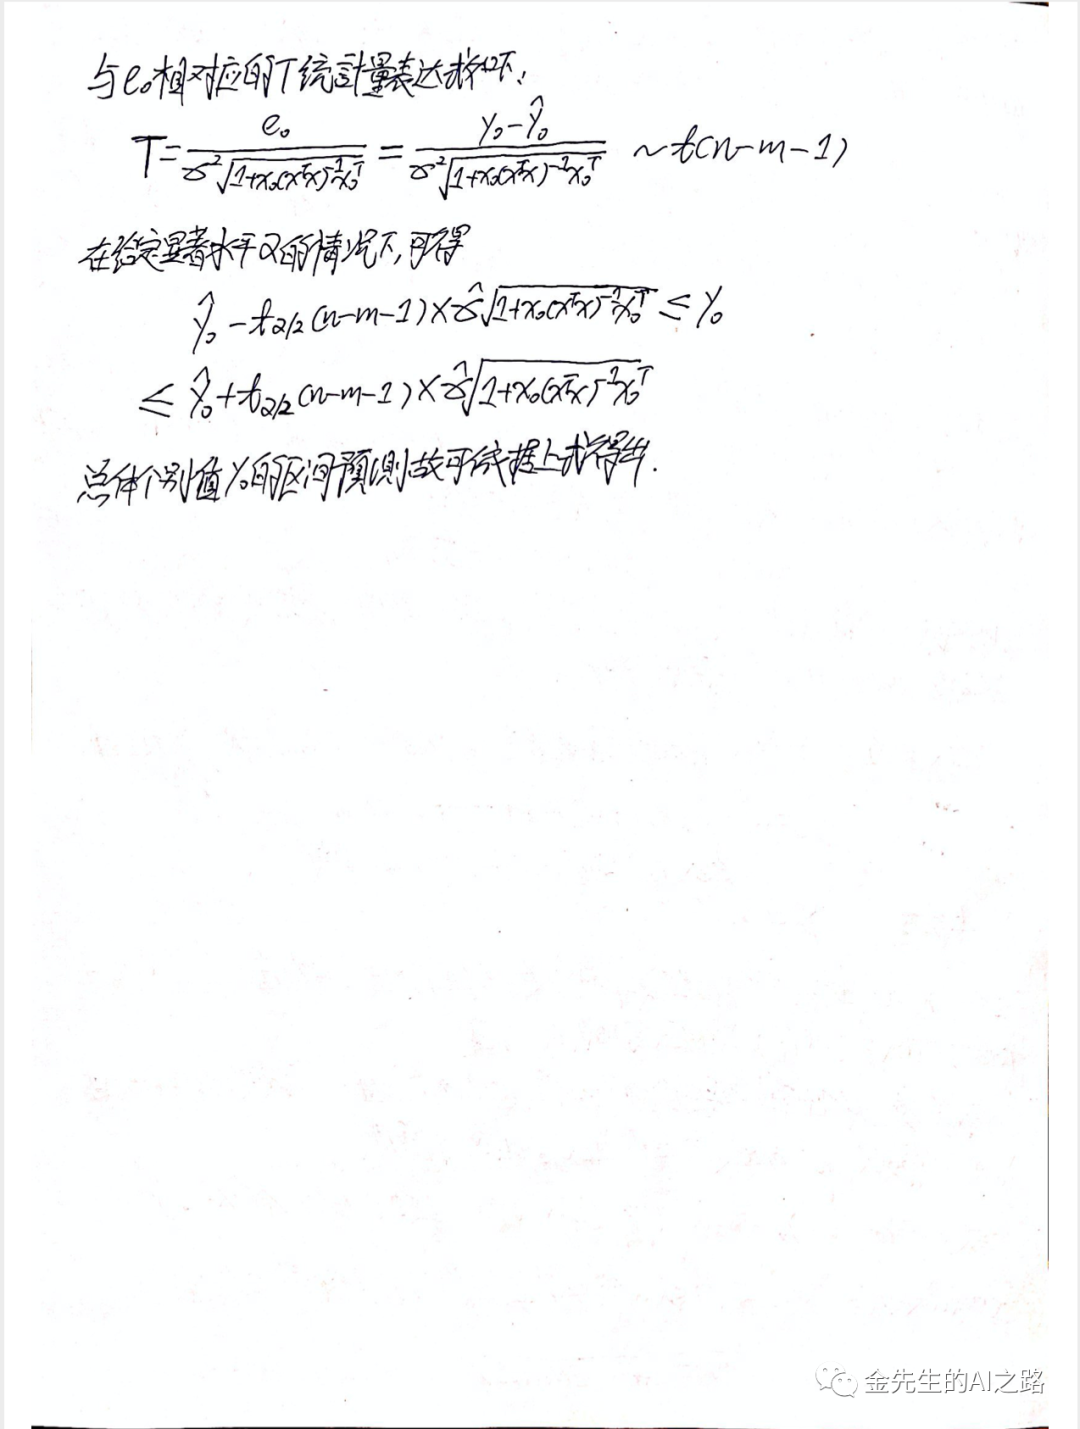 与e₀相对应的T统計量表达式如下:
T = e₀ / (σ²√(1+x₀(xᵀx)⁻¹x₀ᵀ)) = (y₀ - ŷ₀) / (σ²√(1+x₀(xᵀx)⁻¹x₀ᵀ)) ~ t(n-m-1)
在给定显著水平α的情况下,可得
ŷ₀ - t_{α/2}(n-m-1)×σ̂√(1+x₀(xᵀx)⁻¹x₀ᵀ) ≤ y₀
≤ ŷ₀ + t_{α/2}(n-m-1)×σ̂√(1+x₀(xᵀx)⁻¹x₀ᵀ)
总体个别值y₀的区间預測故可依据上式得出.
金先生的AI之路